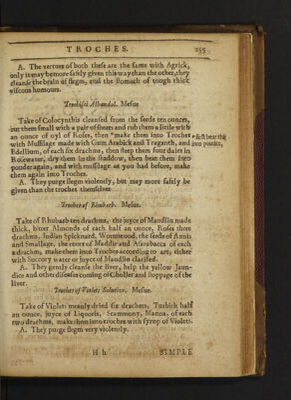 TROCHES. 255
A. The vertues of both these are the same with Agrick,
only it may be more safely given this way than the other, they
cleanse the brain of flegm, and the stomach of tough thick
viscous humours.
Trochisci Alhandal. Mesue
Take of Colocynthis cleansed from the seeds ten ounces,
cut them small with a pair of sheers and rub them a little with
an ounce of oyl of Roses, then *make them into Troches
with Mussilage made with Gum Arabick and Traganth, and
Bdellium, of each six drachms, then steep them four daies in
Rosewater, dry them in the shaddow, then beat them into
pouder again, and with mussilage as you had before, make
them again into Troches.
A. They purge flegm violently, but may more safely be
given than the troches themselves
Troches of Rhubarb. Mesue.
Take of Rhubarb ten drachms, the joyce of Maudlin made
thick, bitter Almonds of each half an ounce, Roses three
drachms, Indian Spicknard, Wormwood, the seeds of Annis
and Smallage, the roots of Maddir and Asarabacca of each
a drachm, make them into Troches according to art, either
with Succory water or joyce of Maudlin clarified.
A. They gently cleanse the liver, help the yellow Jaun-
dice and other diseases coming of Choller and stoppage of the
liver.
Troches of Violets Solutive. Mesue.
Take of Violets meanly dried six drachms, Turbith half
an ounce, joyce of Liquoris, Scammony, Manna, of each
two drachms, make them into troches with syrop of Violets.
A. They purge flegm very violently.
H h SIMPLE